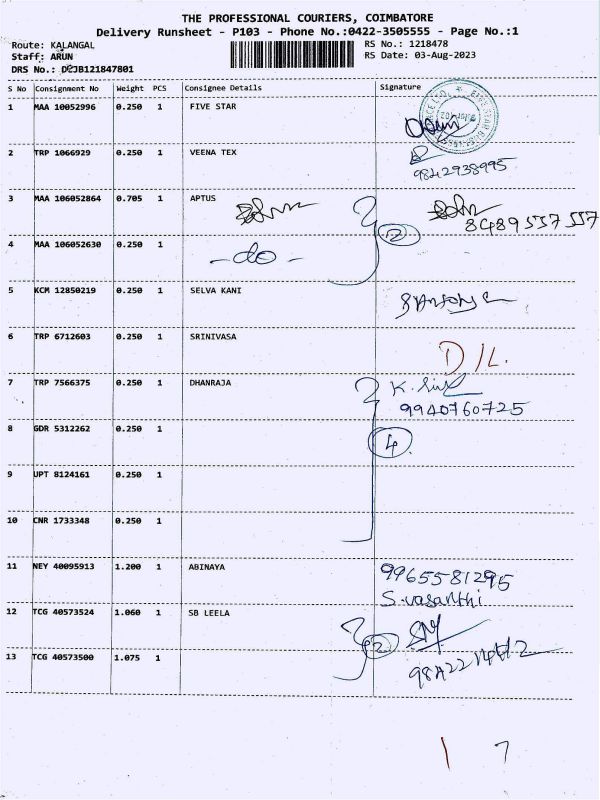 THE PROFESSIONAL COURIERS, COIMBATORE
Delivery Runsheet - P103 - Phone No.:0422-3505555 - Page No.:1
Route: KALANGAL RS No.: 1218478
Staff: ARUN RS Date: 03-Aug-2023
DRS No.: DCJB121847801
S No Consignment No Weight PCS Consignee Details Signature
1 MAA 10052996 0.250 1 FIVE STAR
2 TRP 1066929 0.250 1 VEENA TEX
9842938995
3 MAA 106052864 0.705 1 APTUS
8489557557
4 MAA 106052630 0.250 1 2
-do-
5 KCM 12850219 0.250 1 SELVA KANI
6 TRP 6712603 0.250 1 SRINIVASA
D/L.
7 TRP 7566375 0.250 1 DHANRAJA K.
9940760725
8 GDR 5312262 0.250 1 4
9 UPT 8124161 0.250 1
10 CNR 1733348 0.250 1
11 NEY 40095913 1.200 1 ABINAYA 9965581295
S.vasanthi
12 TCG 40573524 1.060 1 SB LEELA
2
13 TCG 40573500 1.075 1
1 7